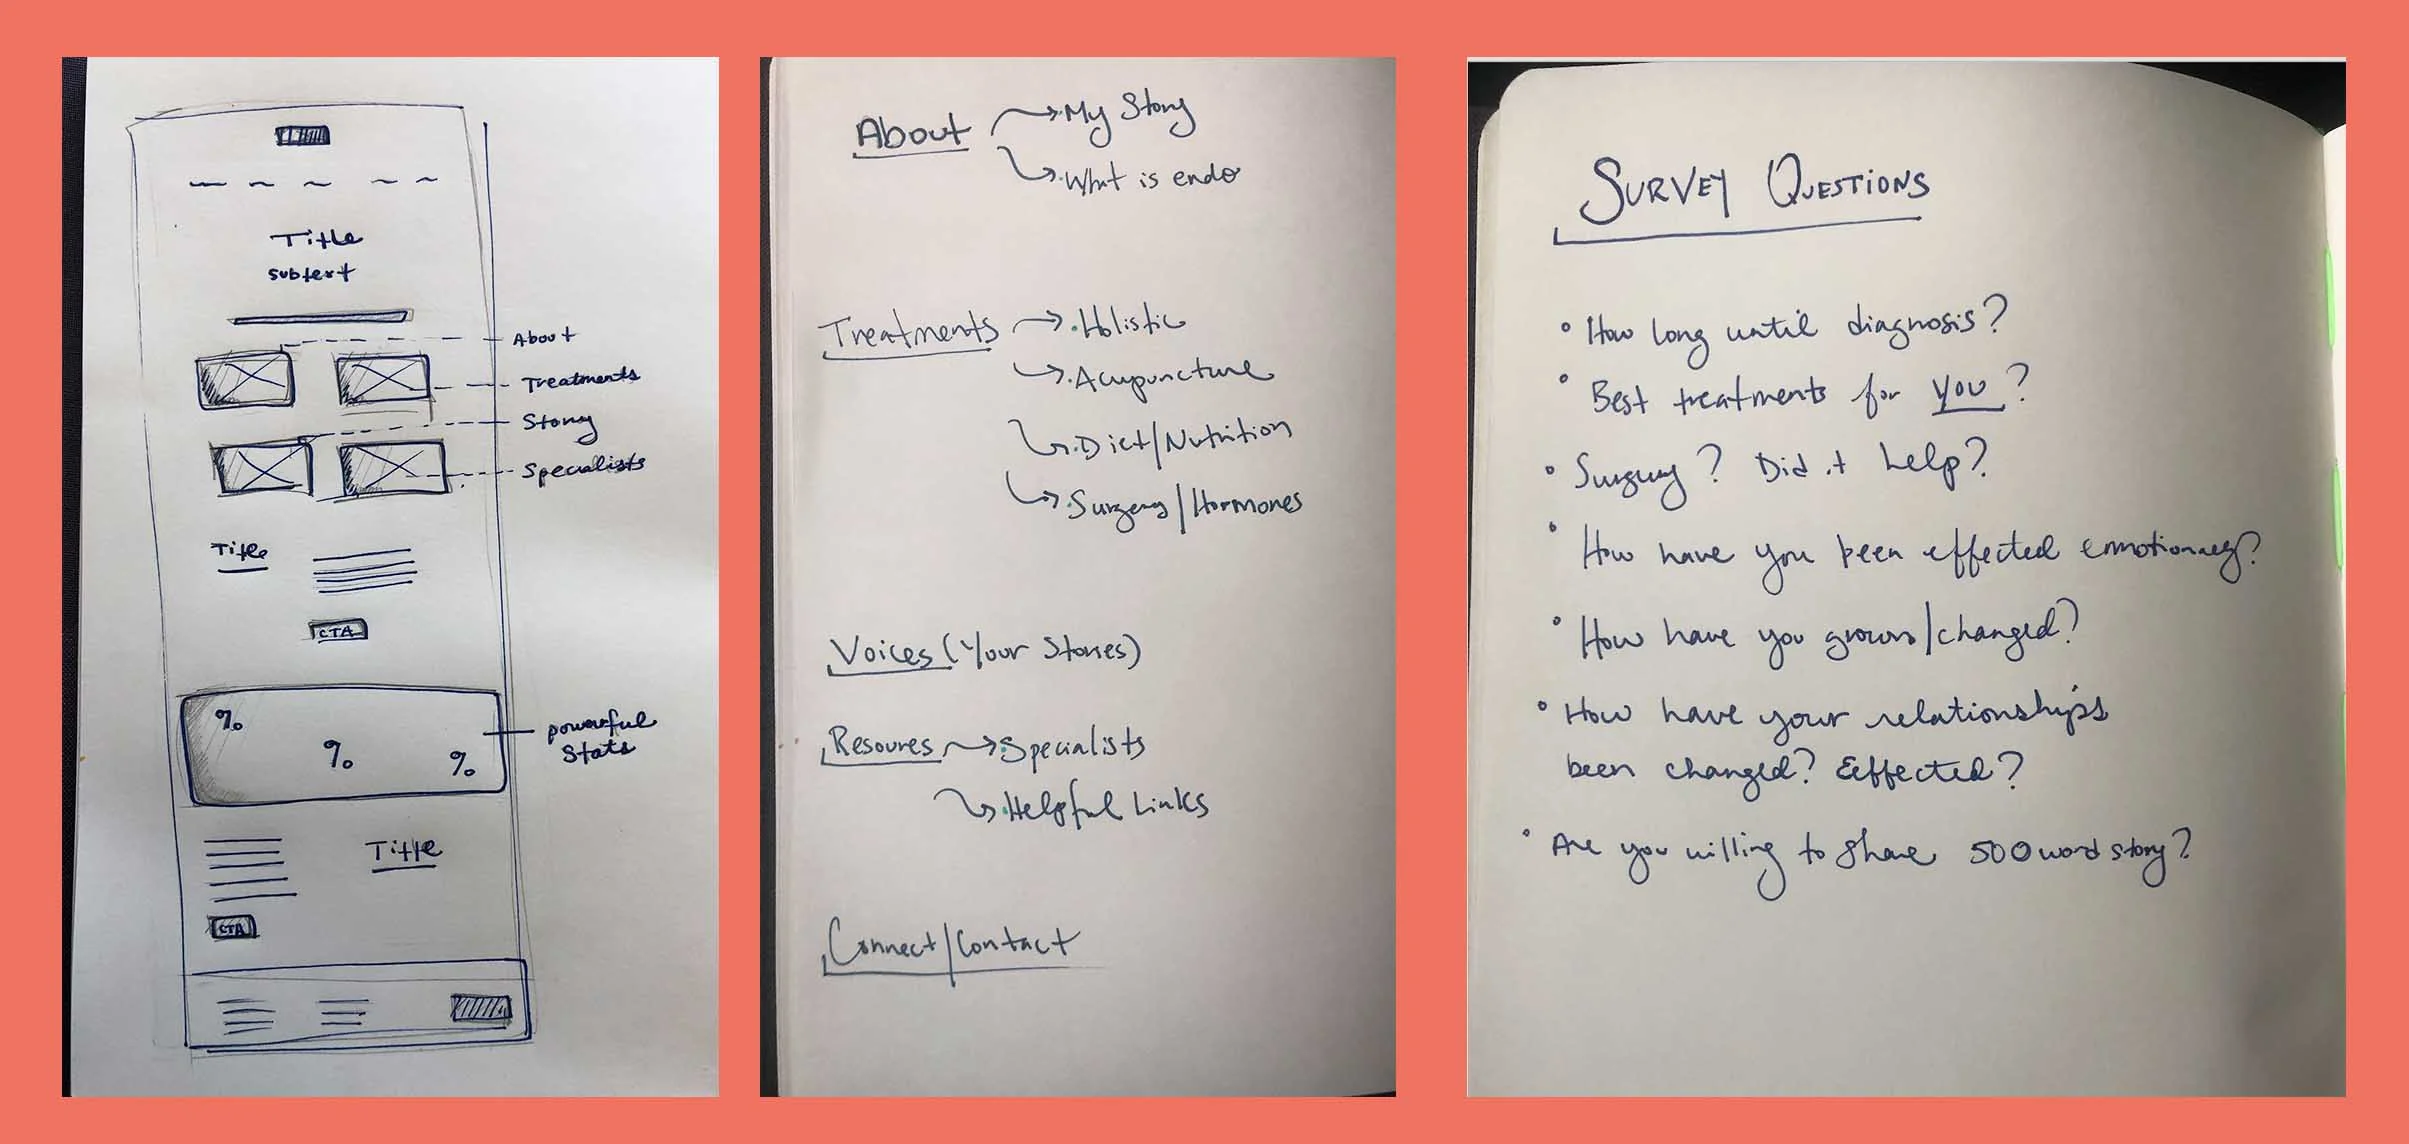 Title
subtext
About
Treatments
Story
Specialists
Title
CTA
%
%
%
powerful
Stats
Title
CTA
About
My Story
What is endo
Treatments
Holistic
Acupuncture
Diet/Nutrition
Surgery/Hormones
Voices (Your Stories)
Resoures
Specialists
Helpful Links
Connect/Contact
SURVEY QUESTIONS
• How long until diagnosis?
• Best treatments for you?
• Surgery? Did it help?
• How have you been effected emotionally?
• How have you grown/changed?
• How have your relationships
been changed? Eeffected?
• Are you willing to share 500 word story?